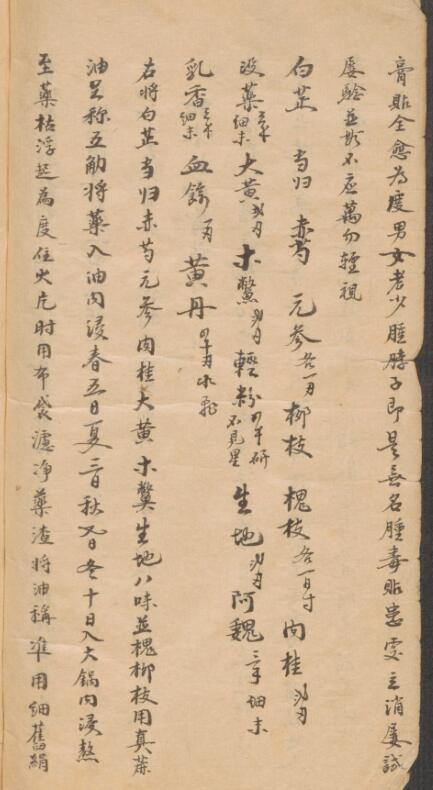 膏貼全愈為度男女老少腫脖子即是無名腫毒貼患處立消屢試
屢驗並無不應萬勿輕視
白芷 当归 赤芍 元参各一刄 柳枝 槐枝各一百寸 肉桂
没藥細末 大黄 木鱉 輕粉研不見星 生地 阿魏三羊細末
乳香細末 血餘一刄 黄丹水飛
右將白芷当归赤芍元参肉桂大黄木鱉生地八味並槐柳枝用真蔴
油足称五觔將藥入油内浸春五日夏三日秋七日冬十日入大鍋内浸熬
至藥枯浮起為度住火片时用布袋濾净藥渣將油稱準用細舊絹